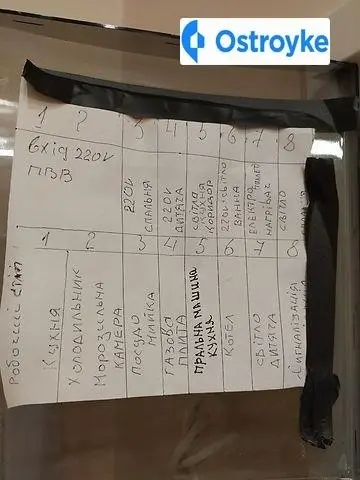 Ostroyke
1 2 3 4 5 6 7 8
вхід 220v
ПЗВ
220v
спальня
220v
дитяча
світло
кухня
коридор
220v-світло
ванна
електро
нагрівач
світло
1 2 3 4 5 6 7 8
Робочий
Кухня
Холодильник
Морозильна
камера
посудо
мийка
газова
плита
пральна машина
кухня
котел
світло
дитяча
сигналізація